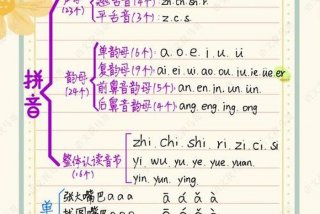 (23个)
翘舌音(4个): zh.ch.sh.r
平舌音(3个): z.c.s.
拼音
单韵母(6个): a.o.e.i.u.ü
韵母
(24个)
复韵母(9个): ai.ei.ui.ao.ou.iu.ie.üe er
前鼻音韵母(5个): an.en.in.un.ün.
后鼻音韵母(4个): ang.eng.ing.ong
整体认读音节
(16个)
zhi.chi.shi.ri.zi.ci.si
yi.wu.yu.ye.yue.yuan.
yin.yun.ying.
单
张大嘴巴 a a a ā á ǎ à